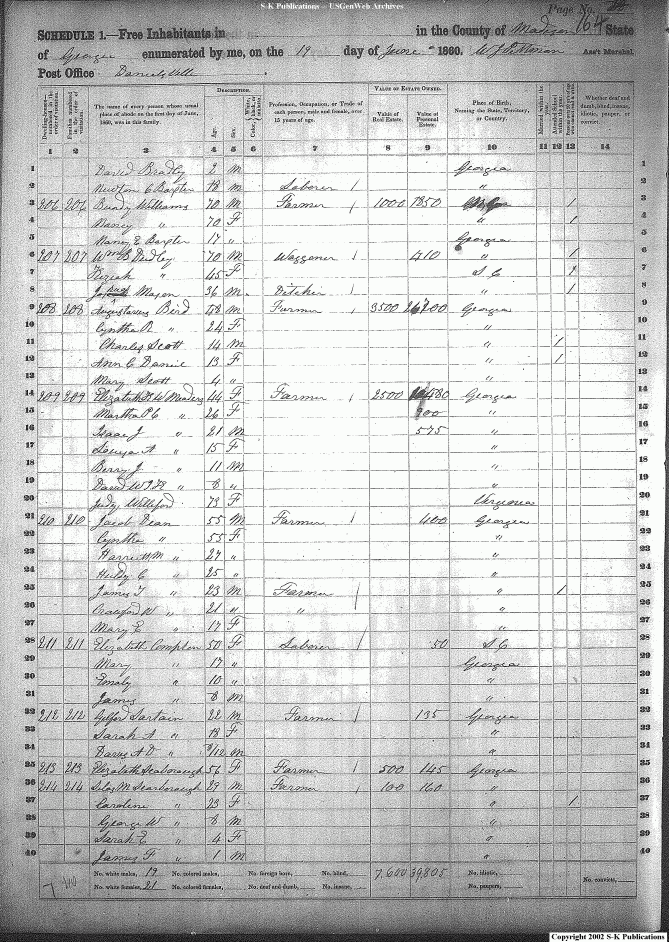 S-K Publications -- USGenWeb Archives
Page No. 164
SCHEDULE 1.—Free Inhabitants in in the County of Madison State
of Georgia enumerated by me, on the 19 day of June 1860. Ass't Marshal.
Post Office Danielsville
DESCRIPTION. VALUE OF ESTATE OWNED.
Dwelling-houses numbered in the order of visitation. Families numbered in the order of visitation. The name of every person whose usual place of abode on the first day of June, 1860, was in this family. Age. Sex. Color, Profession, Occupation, or Trade of each person, male and female, over 15 years of age. Value of Real Estate. Value of Personal Estate. Place of Birth, Naming the State, Territory, or Country. Married within the year. Attended School within the year. Whether deaf and dumb, blind, insane, idiotic, pauper, or convict.
1 2 3 4 5 6 7 8 9 10 11 12 13 14
1 David Bradly 2 M Georgia 1
2 Newton C Baxter 18 M Laborer / " 2
3 206 206 Williams 70 M Farmer / 1000 7850 / 3
4 Nancy " 70 F " / 4
5 Nancy E Baxter 17 " Georgia 5
6 207 207 Wm B Dudley 70 M Waggoner / 410 " / 6
7 Keziah " 45 F S C / 7
8 Mason 36 M Ditcher / " / 8
9 208 208 Augustavus Bird 48 M Farmer / 3500 Georgia 9
10 Cyntha R " 24 F " 10
11 Charles Scott 14 M " / 11
12 Ann C Daniel 13 F " / 12
13 Mary Scott 4 " " 13
14 209 209 Elizabeth 44 F Farmer / 2500 Georgia 14
15 Martha P C " 26 F " 15
16 Isaac J " 21 M 575 " 16
17 A " 15 F " 17
18 Berry J " 11 M " 18
19 David " 8 " " 19
20 Judy Williford 73 F Virginia 20
21 210 210 Jacob Dean 55 M Farmer / 400 Georgia 21
22 Cyntha " 55 F " 22
23 Harriet M " 27 " " 23
24 C " 25 " " 24
25 James T " 23 M Farmer / " / 25
26 Crawford W " 21 " " / " 26
27 Mary E " 17 F " 27
28 211 211 Elizabeth Compton 50 F Laborer / 50 S C 28
29 Mary " 17 " Georgia 29
30 Emaly " 10 " " 30
31 James " 8 M " 31
32 212 212 Gilford Sartain 22 M Farmer / 135 Georgia 32
33 Sarah A " 18 F " 33
34 " M " 34
35 213 213 Elizabeth Seaborough 56 F Farmer / 500 145 Georgia 35
36 214 214 Silas M Scarborough 29 M Farmer / 100 160 " 36
37 Caroline " 23 F " / 37
38 George W " 8 M " 38
39 Sarah E " 4 F " 39
40 James F " 1 M " 40
No. white males, 19 No. colored males, No. foreign born, No. blind, 7,600 39805 No. idiotic, No. convicts,
No. white females, 21 No. colored females, No. deaf and dumb, No. insane, No. paupers,
Copyright 2002 S-K Publications